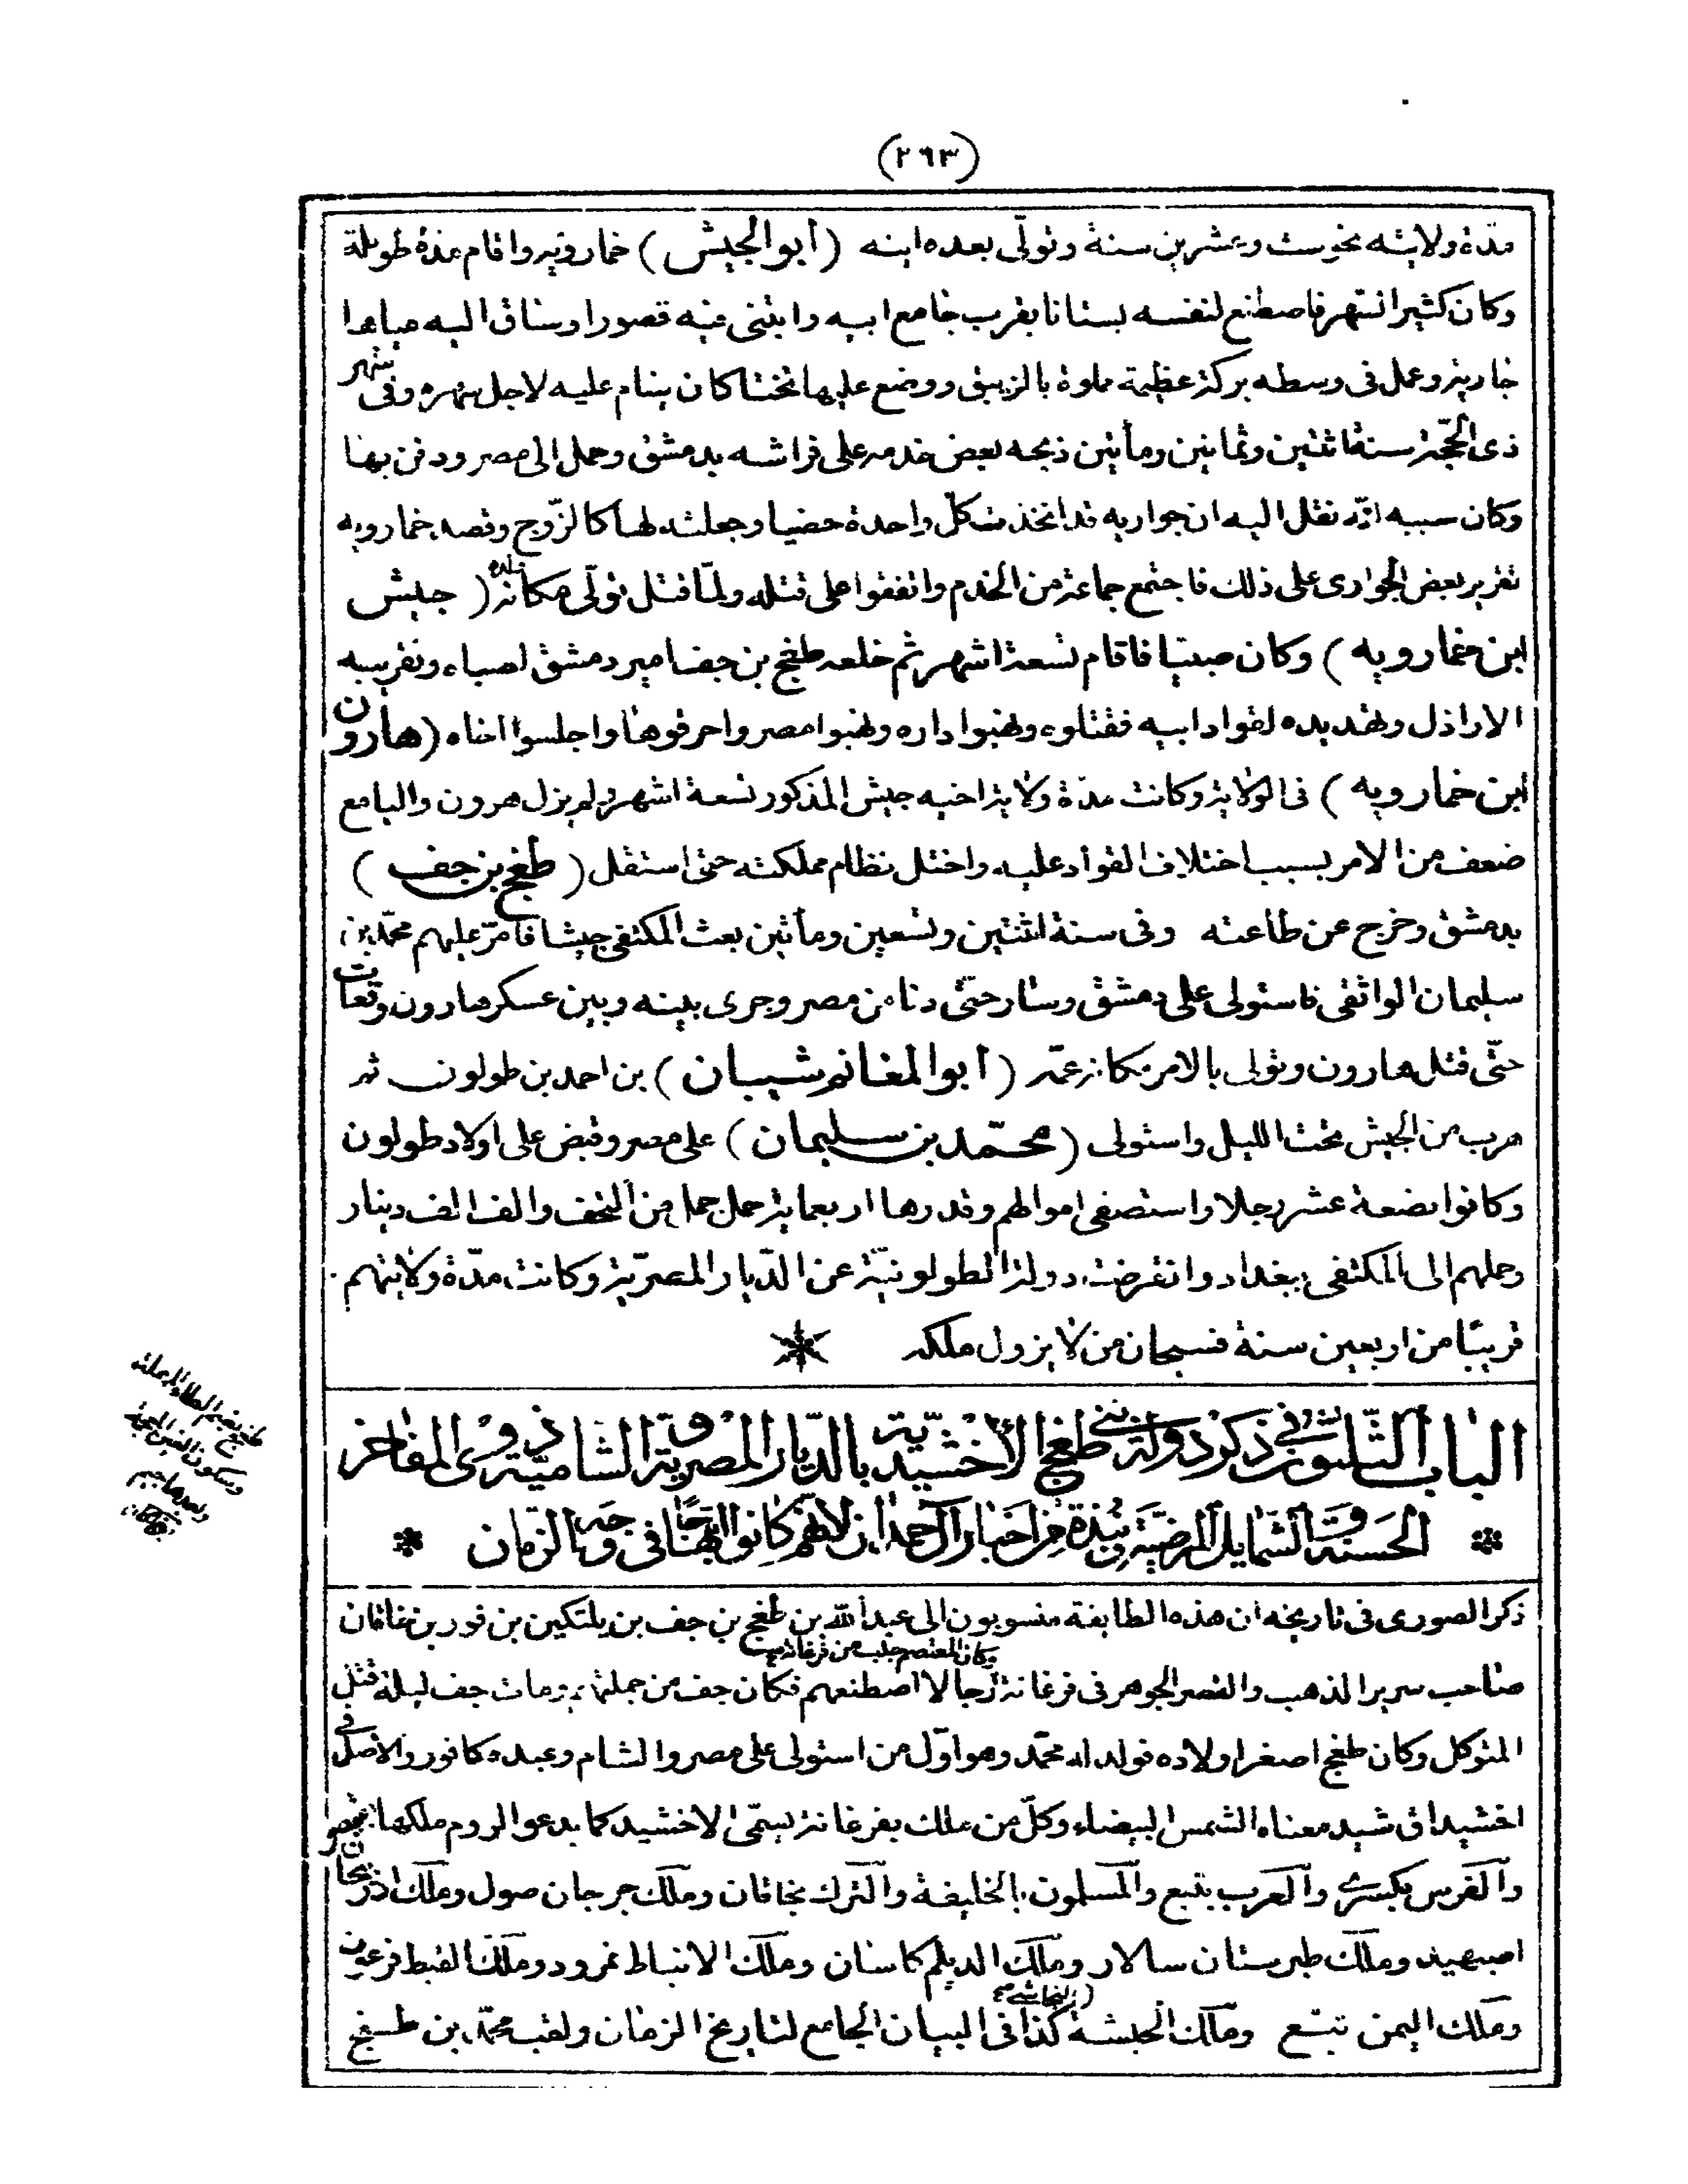 (٢٦٣)
مدّة ولايته نحو ست وعشرين سنة وتولّى بعده ابنه (أبو الجيش) خمارويه واقام مدّة طويلة
وكان كثير السّهر فاصطنع لنفسه بستانا بقرب جامع ابيه وابتنى فيه قصورا وساق اليه مياها
جارية وعمل فى وسطه بركة عظيمة مملوة بالزيبق ووضع عليها تختا كان ينام عليه لاجل سهره وفى شهر
ذى الحجّة سنة اثنتين وثمانين ومأتين ذبحه بعض خدمه على فراشه بدمشق وحمل الى مصر ودفن بها
وكان سببه انّه نقل اليه ان جواريه قد اتخذت كلّ واحدة خصيا وجعلته لها كالزّوج وقصد خمارويه
تقرير بعض الجوارى على ذلك فاجتمع جماعة من الخدم واتفقوا على قتله ولمّا قتل تولّى مكانه ولده (جيش
ابن خمارويه) وكان صبيّا فاقام تسعة اشهر ثم خلعه طغج بن جف امير دمشق لصباه وتقريبه
الاراذل وتهديده لقواد ابيه فقتلوه ونهبوا داره ونهبوا مصر واحرقوها واجلسوا اخاه (هارون
ابن خمارويه) فى الولاية وكانت مدّة ولاية اخيه جيش المذكور تسعة اشهر ولم يزل هرون واليا مع
ضعف من الامر بسبب اختلاف القواد عليه واختل نظام مملكته حتى استقل (طغج بن جف)
بدمشق وخرج عن طاعته وفى سنة اثنتين وتسعين ومأتين بعث المكتفى جيشا فأمّر عليهم محمّد بن
سليمان الواثقى فاستولى على دمشق وسار حتّى دنا من مصر وجرى بينه وبين عسكر هارون وقعات
حتّى قتل هارون وتولى بالامر مكانه عمّه (ابو المغانم شيبان) بن احمد بن طولون ثم
هرب من الجيش تحت الليل واستولى (محمّد بن سليمان) على مصر وقبض على اولاد طولون
وكانوا بضعة عشر رجلا واستصفى اموالهم وقدرها اربعماية حمل جمل من التحف والف الف دينار
وحملهم الى المكتفى ببغداد وانقرضت دولة الطولونيّة عن الدّيار المصريّة وكانت مدّة ولايتهم
قريبًا من اربعين سنة فسبحان من لا يزول ملكه
الباب الثّلثون فى ذكر دولة بنى طغج الأخشيديّة بالدّيار المصريّة والشاميّة ذوى المفاخر
الحسنة والشّمايل المرضيّة ونبذة من اخبار آل حمدان لانهم كانوا ابتهاجا فى وجه الزمان
طغج بضم الطاء المهملة
وسكون الغين المعجمة
وبعدها جيم
ذكر الصورى فى تاريخه ان هذه الطايفة منسوبون الى عبد الله بن طغج بن جف بن يلتكين بن فور بن خاقان
وكان المعتصم جلب من فرغانة
صاحب سرير الذهب والقصر الجوهر فى فرغانة رجالا اصطنعهم فكان جف من جملتهم ومات جف ليلة قتل
المتوكل وكان طغج اصغر اولاده فولد له محمّد وهو اوّل من استولى على مصر والشام وعبده كافور والاصل فى
اخشيد اق شيد معناه الشمس البيضاء وكلّ من ملك بفرغانة يسمّى الاخشيد كما يدعو الروم ملكها بقيصر
والفرس بكسرى والعرب بتبع والمسلمون بالخليفة والترك بخاقان وملك جرجان صول وملك اذربيجان
اصبهبد وملك طبرستان سالار وملك الديلم كاسان وملك الانباط نمرود وملك القبط فرعون
وملك اليمن تبّع وملك الحبشة النجاشى كذا فى البيان الجامع لتاريخ الزمان ولقب محمّد بن طغج